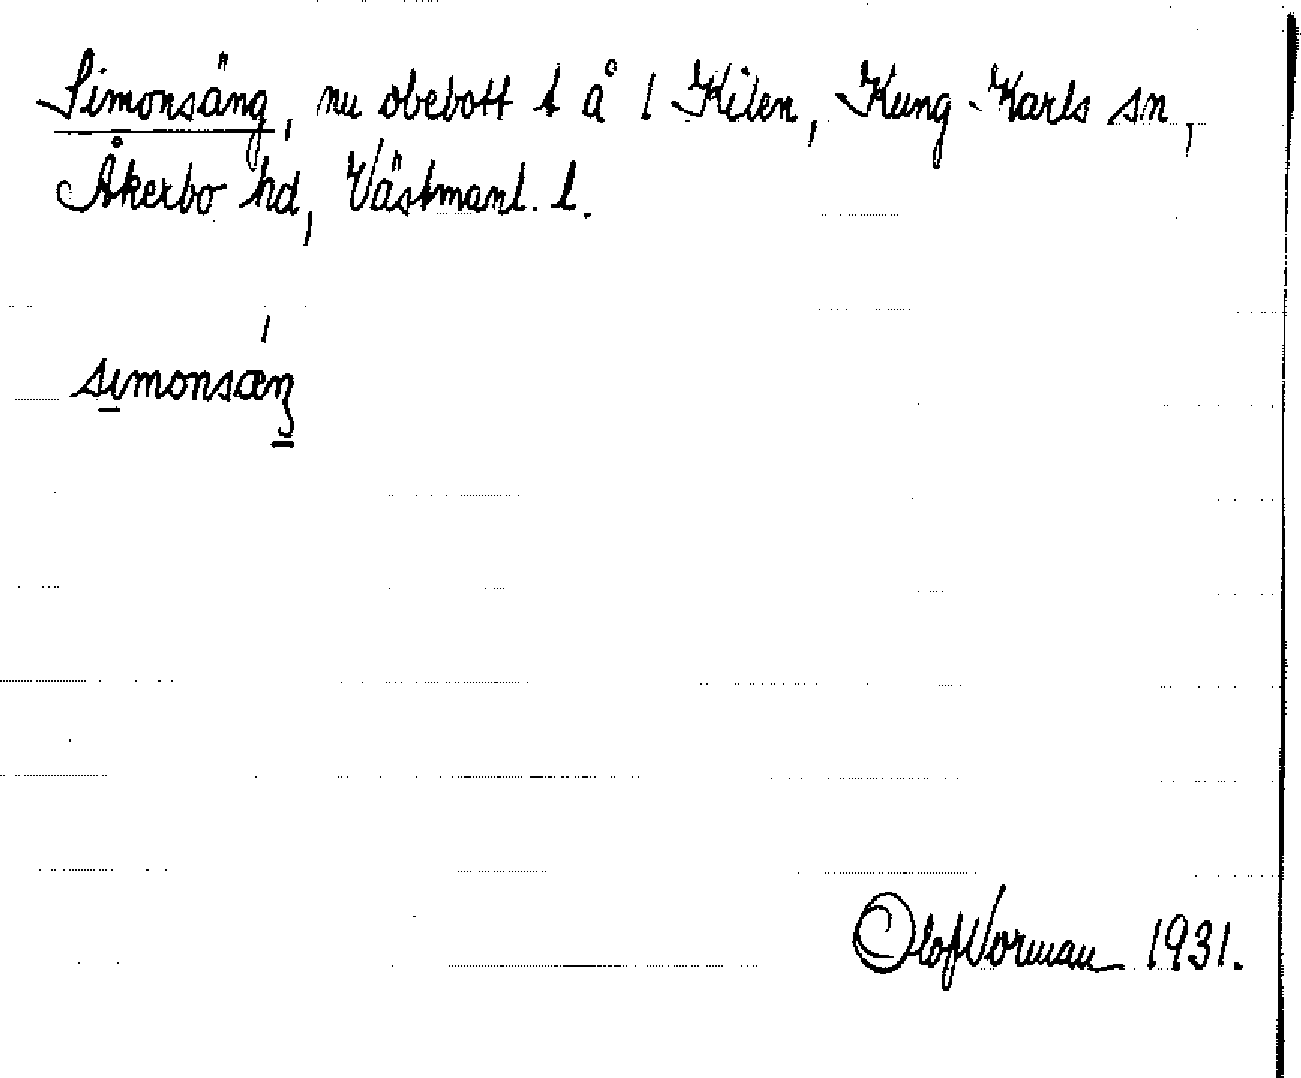 Simonsäng, nu obebott t å l Kilen, Kung-Karls sn,
Åkerbo hd, Västmanl. l.
simonsæŋ
Olof Vorman 1931.